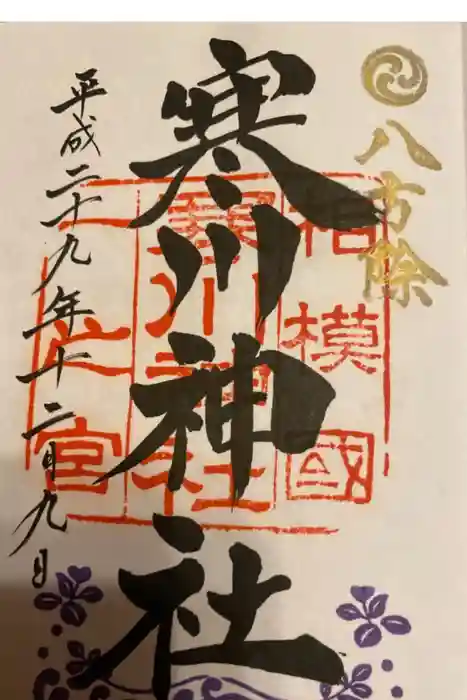 八方除
寒川神社
平成二十九年十二月九日
相模國
寒川神社
一之宮